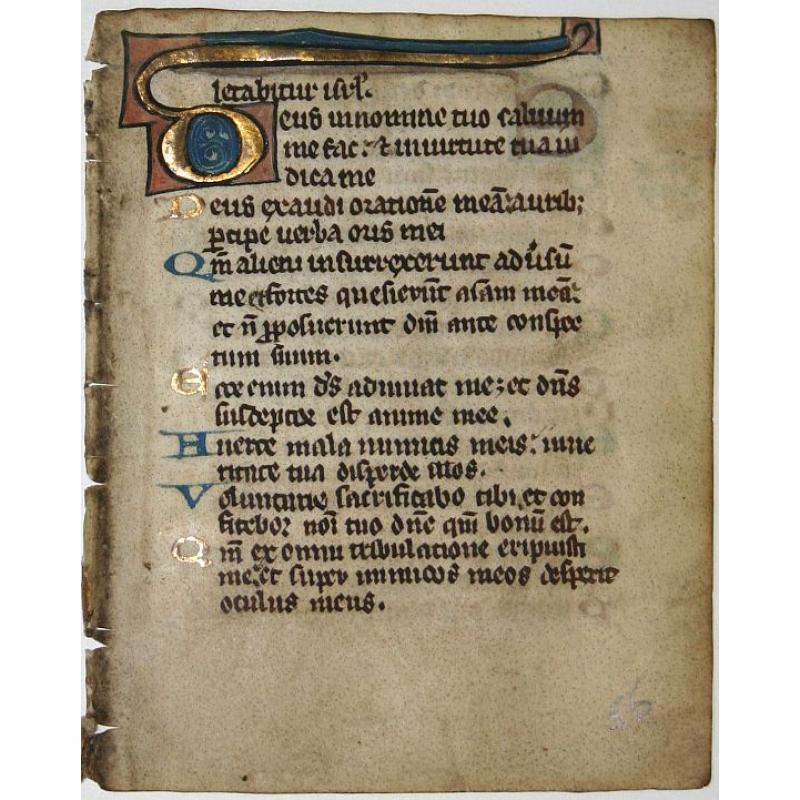 letabitur isrl.
Deus in nomine tuo saluum
me fac: & in uirtute tua iu
dica me
Deus exaudi oratione meā: aurib;
ꝑcipe uerba oris mei
Qm̄ alieni insurrexerunt aduīsū
me et fortes quesierūt aīam meā:
et n̄ ꝓposuerunt dm̄ ante conspec
tum suum.
Ecce enim ds̄ adiuuat me: et dn̄s
susceptor est anime mee.
Auerte mala inimicis meis: in ue
ritate tua disperde illos.
Voluntarie sacrificabo tibi, et con
fitebor noī tuo dn̄e qm̄ bonū est.
Qm̄ ex omni tribulatione eripuisti
me, et super inimicos meos despexit
oculus meus.
56